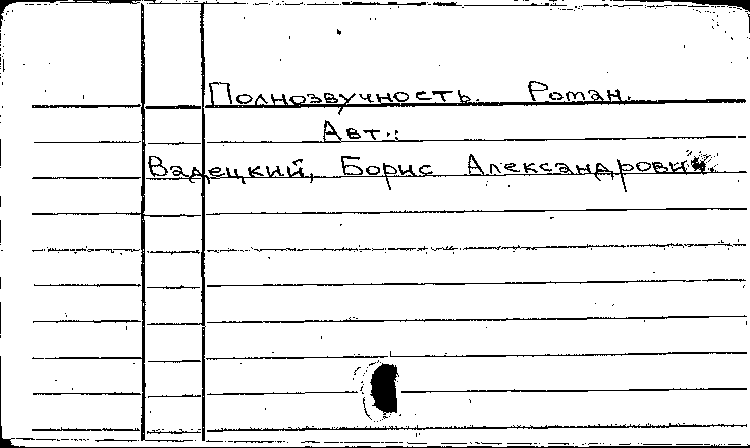 Полнозвучность. Роман.
Авт.:
Вадецкий, Борис Александрович.